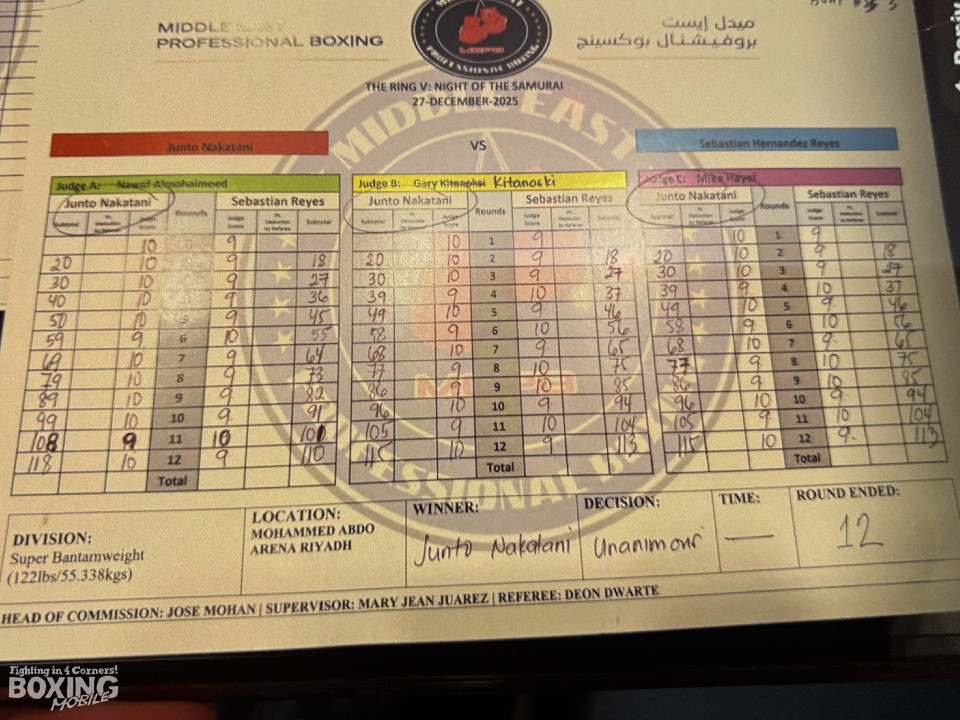 MIDDLE EAST
PROFESSIONAL BOXING
ميدل إيست
بروفيشنال بوكسينج
PROFESSIONAL BOXING
THE RING V: NIGHT OF THE SAMURAI
27-DECEMBER-2025
Junto Nakatani VS Sebastian Hernandez Reyes
Judge A: Nawaf Almohaimeed Judge B: Gary Kitanoski Judge C: Mike
Junto Nakatani Rounds Sebastian Reyes Junto Nakatani Rounds Sebastian Reyes Junto Nakatani Rounds Sebastian Reyes
Subtotal Pt. Deduction by Referee Judge Score Judge Score Pt. Deduction by Referee Subtotal Subtotal Pt. Deduction by Referee Judge Score Judge Score Pt. Deduction by Referee Subtotal Subtotal Pt. Deduction by Referee Judge Score Judge Score Pt. Deduction by Referee Subtotal
10 9 10 1 9 10 1 9
20 10 9 18 20 10 2 9 18 20 10 2 9 18
30 10 9 27 30 10 3 9 27 30 10 3 9 27
40 10 9 36 39 9 4 10 37 39 9 4 10 37
50 10 5 9 45 49 10 5 9 46 49 10 5 9 46
59 9 6 10 55 58 9 6 10 56 58 9 6 10 56
69 10 7 9 64 68 10 7 9 65 68 10 7 9 65
79 10 8 9 73 77 9 8 10 75 77 9 8 10 75
89 10 9 9 82 86 9 9 10 85 86 9 9 10 85
99 10 10 9 91 96 10 10 9 94 96 10 10 9 94
108 9 11 10 101 105 9 11 10 104 105 9 11 10 104
118 10 12 9 110 115 10 12 9 113 115 10 12 9 113
Total Total Total
DIVISION:
Super Bantamweight
(122lbs/55.338kgs)
LOCATION:
MOHAMMED ABDO
ARENA RIYADH
WINNER:
Junto Nakatani
DECISION:
Unanimour
TIME:
—
ROUND ENDED:
12
HEAD OF COMMISSION: JOSE MOHAN | SUPERVISOR: MARY JEAN JUAREZ | REFEREE: DEON DWARTE
MIDDLE EAST
PROFESSIONAL BOXING
Fighting in 4 Corners!
BOXING
MOBILE